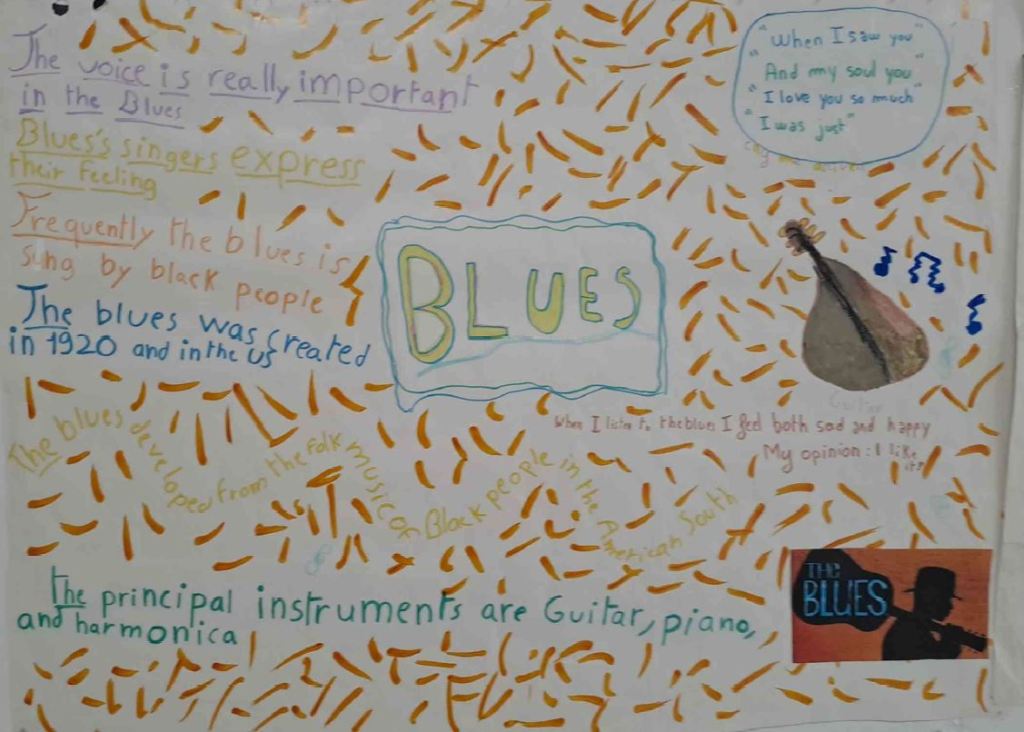 The voice is really important
in the Blues
Blues's singers express
their Feeling
Frequently the blues is
sung by black people
The blues was created
in 1920 and in the US
BLUES
"When I saw you"
"And my soul you"
"I love you so much"
"I was just"
Guitar
When I listen to the blues I feel both sad and happy
My opinion : I like
it!
The blues developed from the folk music of Black people in the American South
The principal instruments are Guitar, piano,
and harmonica
THE
BLUES